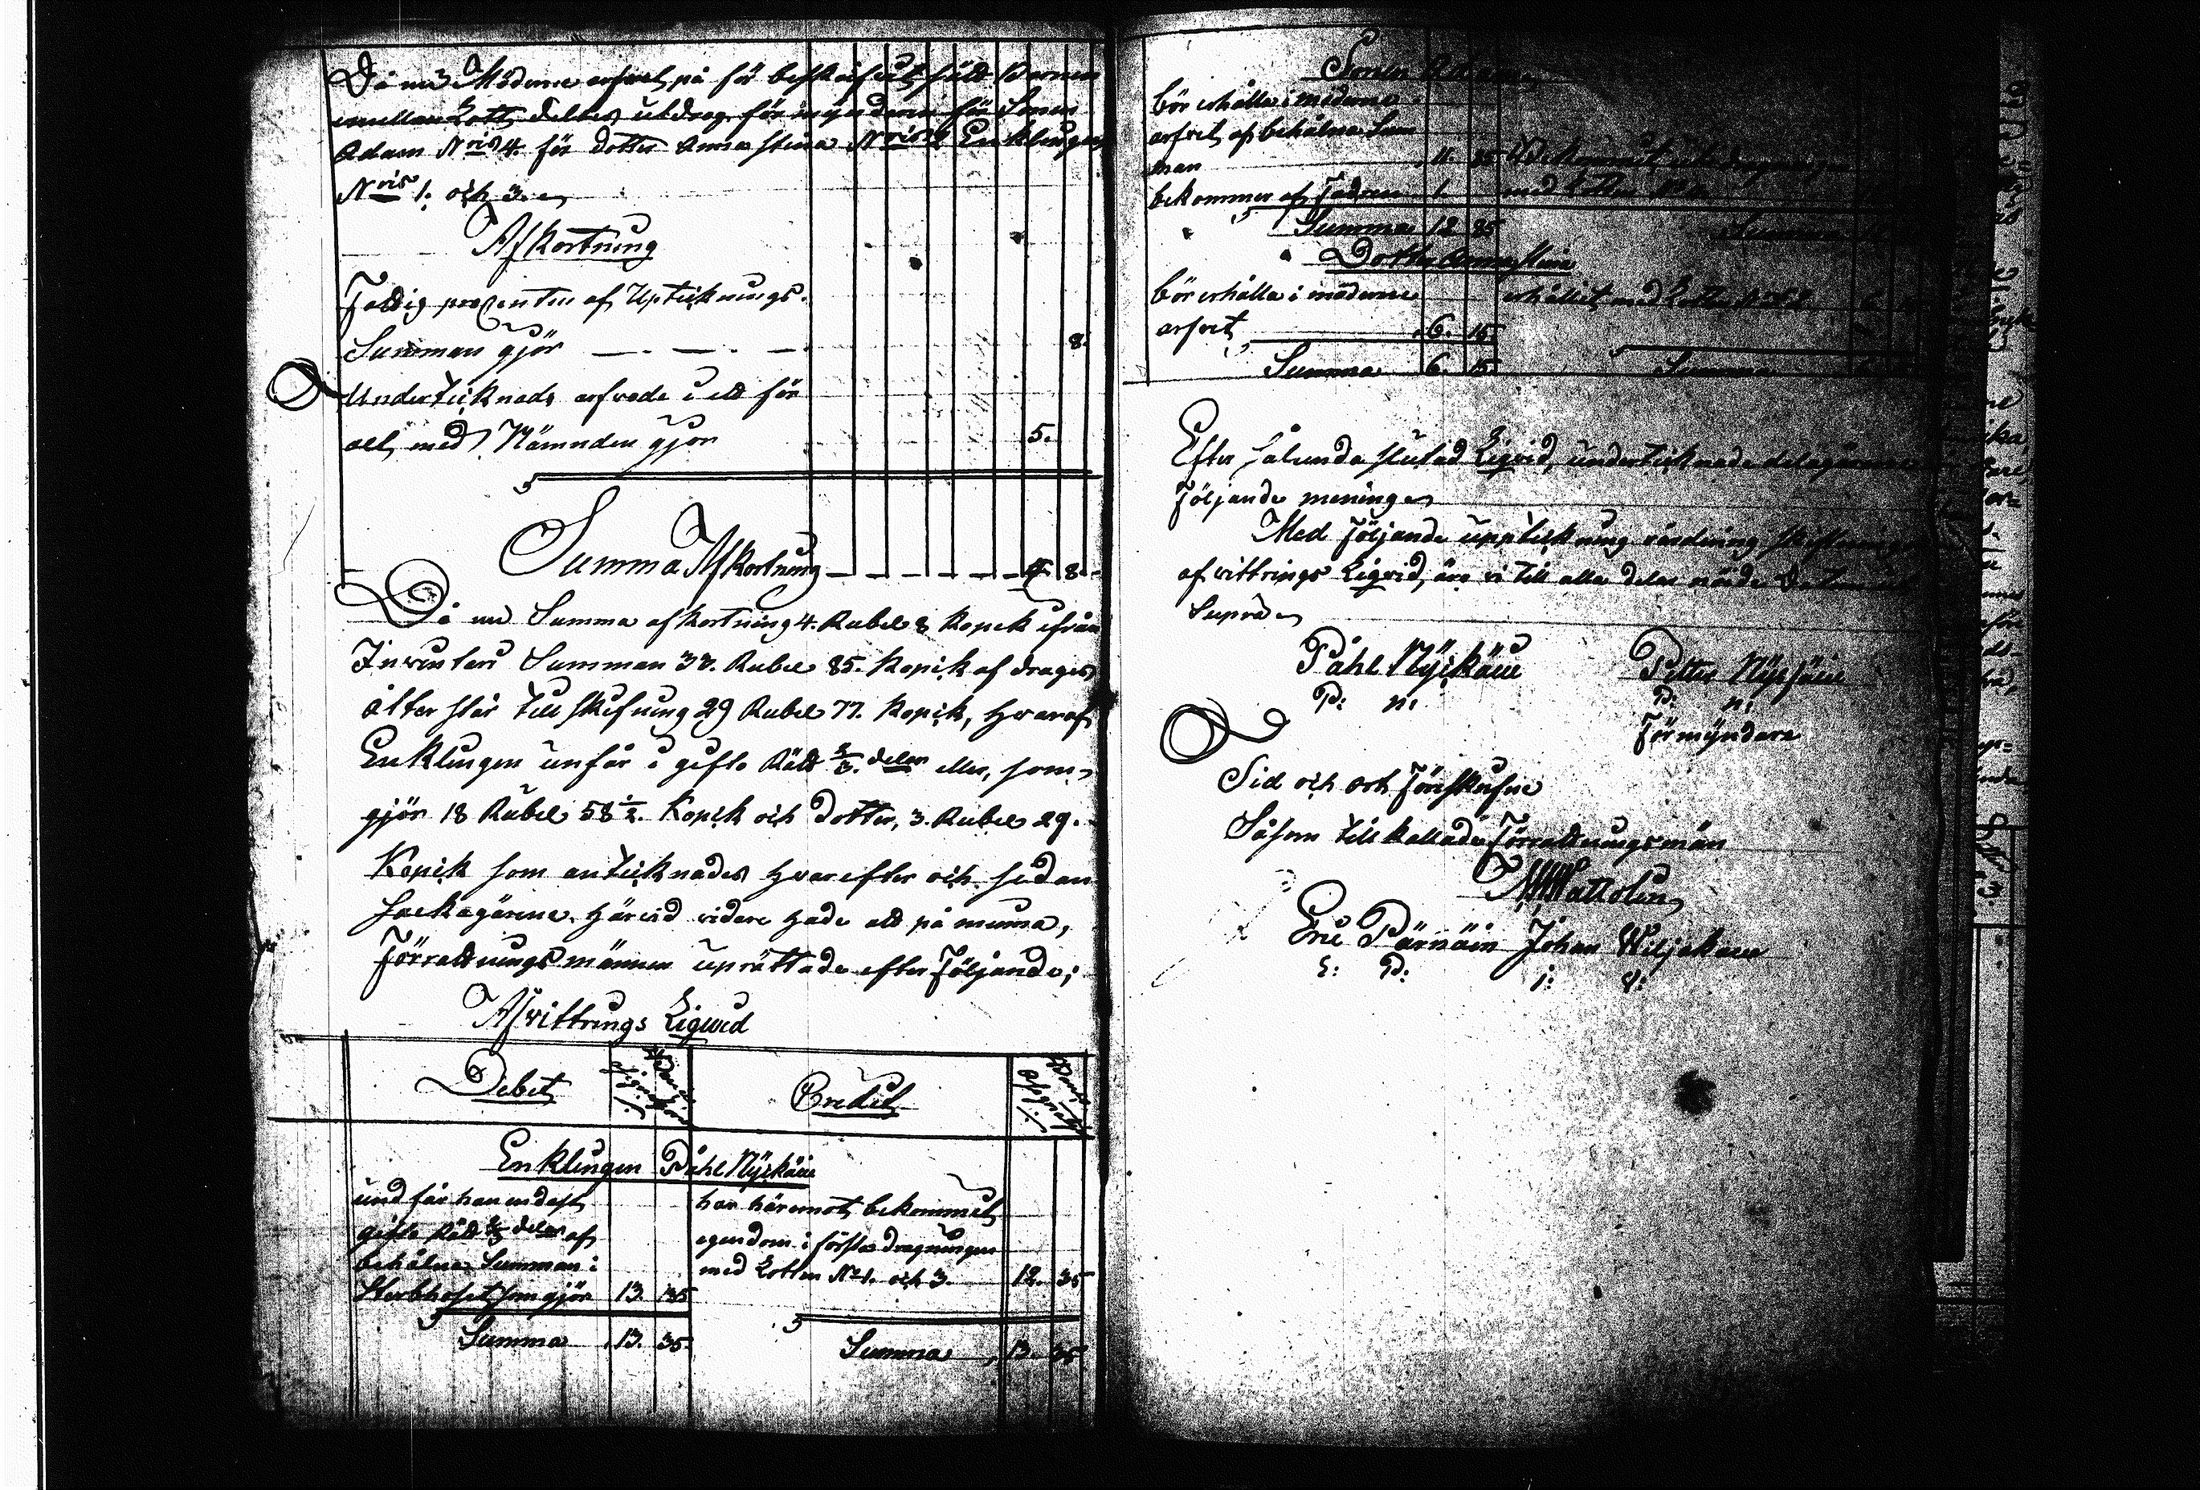 Då nu Möderne arfvet, på för beskrifvit sätt Barnen
emellan Lott deltes utdrog förmyndaren för Sonen
Adam N:ris 4. för dotter Anna Stina N:ris 2 Enklingen
N:ris 1. och 3.
Afkortning
Fattig procenten af Uptecknings
Summan gjör — . — . — 8.
Undertecknads arfvode i ett för
allt, med Nämnden gjör 5.
Summa Afkortning — — — — — 4. 8.
Då nu Summa afkortning 4. Rubel 8 Kopek ifrån
Inventarii Summan 33. Rubel 85. Kopek afdrages
återstår till skifning 29 Rubel 77. Kopek, hvaraf
Enklingen unfår i gifto Rätt 2/3. delen eller, som
gjör 18 Rubel 58 1/2. Kopek och dotter, 3. Rubel 29.
Kopek som antecknades hvarefter och sedan
sackägarene härvid vidare hade att påminna,
Förrättningsmännen uprättade efter Följande;
Afvittrings Liqvid
Debet Credit
Enklingen Påhl Nyykäin
undfår han endast
gifto Rätt 2/3 delar af
behålne Summan i
Sterbhuset som gjör 13. 35
Summa 13. 35.
har häremot bekommit
egendom i första dragningen
med Lotten N:o 1. och 3. 12. 35
Summa 13. 35
Sonen Adam
bör erhålla i möderne
arfvet af behålna Sum
man 11. 85
bekommer af Fadren 1.
Summa 12 85
med Lotten N:o
Summa
Dotter Anna Stina
bör erhålla i möderne
arfvet 6. 15.
Summa 6. 15
erhållit med Lotten N:o 2
Summa
Efter sålunda slutad Liqvid, undertecknade delägarne
Följande mening
Med Följande uppteckning värdering skiftning
afvittrings Liqvid, äro vi till alla delar nöjde Datum ut
Supra
Påhl Nyykäin Petter Nyykäin
P: N: P: N:
Förmyndare
Tid och ort Föreskrefne
Såsom tillkallade Förrättningsmän
Eric Pärnäin Johan Wiljakain
E: P: J: W: